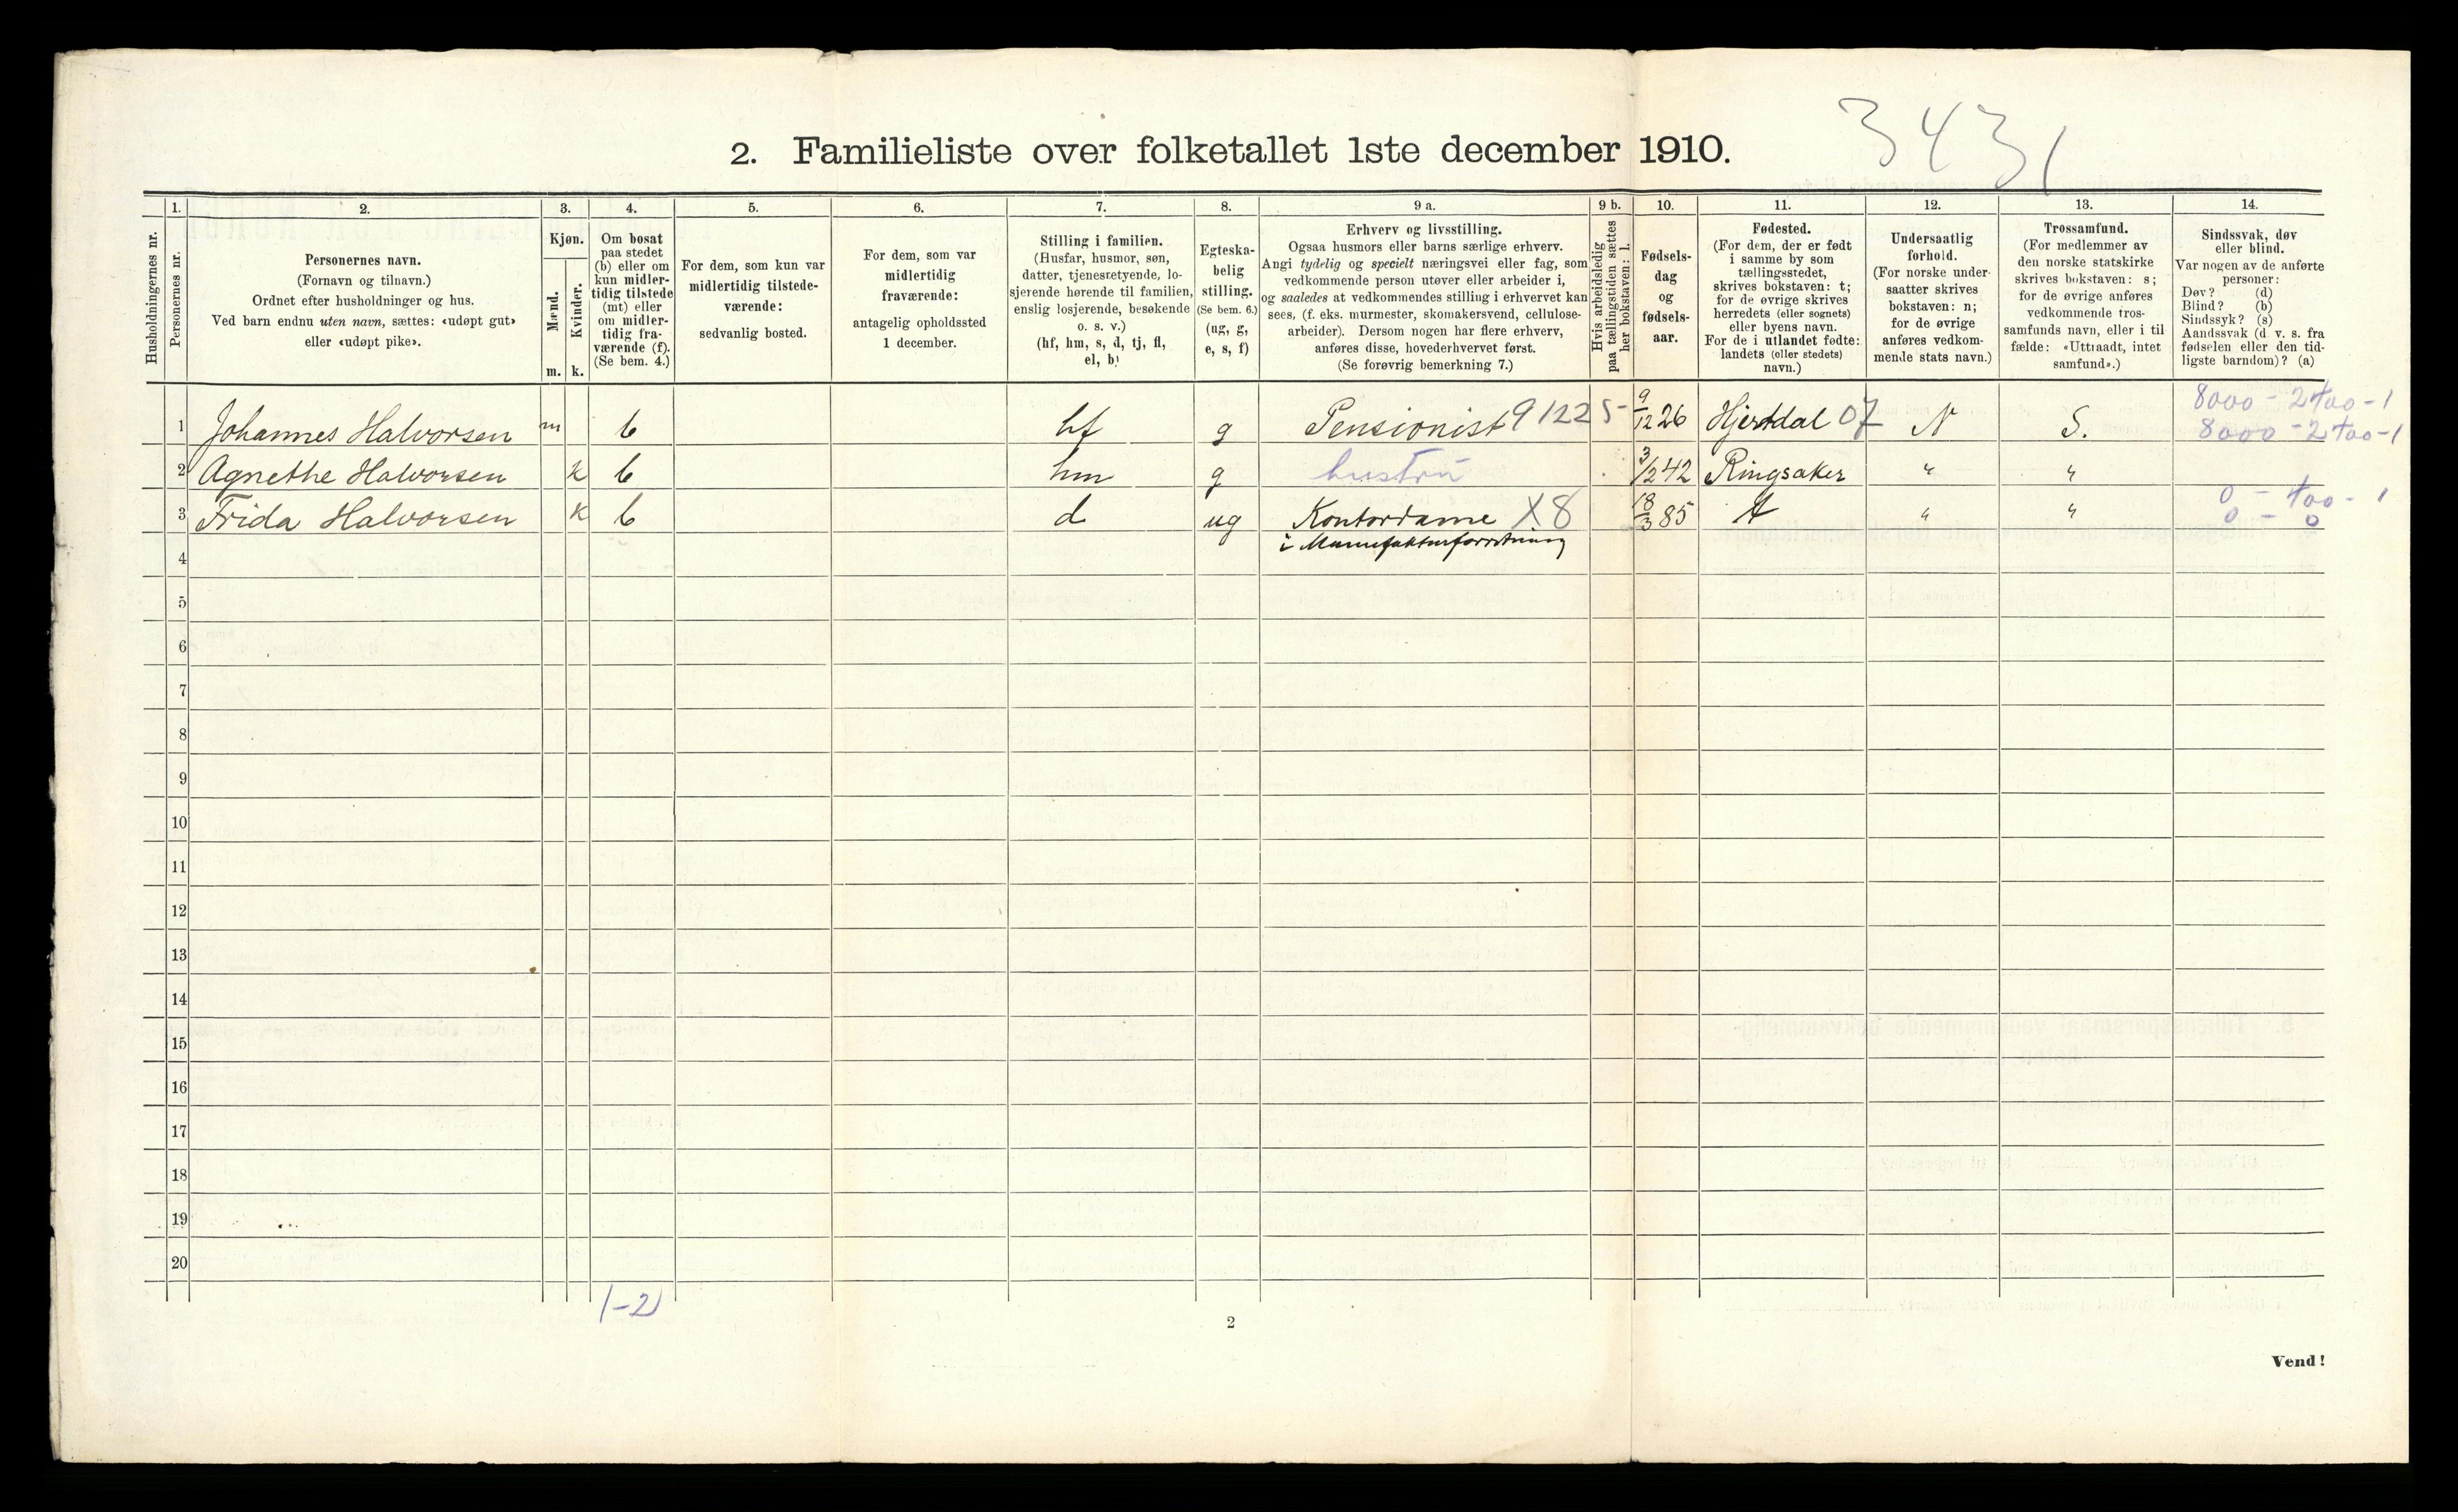 3431
2. Familieliste over folketallet 1ste december 1910.
Husholdningernes nr.
1.
Personernes nr.
2.
Personernes navn.
(Fornavn og tilnavn.)
Ordnet efter husholdninger og hus.
Ved barn endnu uten navn, sættes: «udøpt gut»
eller «udøpt pike».
3.
Kjøn.
Mænd.
Kvinder.
m. k.
4.
Om bosat
paa stedet
(b) eller om
kun midler-
tidig tilstede
(mt) eller
om midler-
tidig fra-
værende (f).
(Se bem. 4.)
5.
For dem, som kun var
midlertidig tilstede-
værende:
sedvanlig bosted.
6.
For dem, som var
midlertidig
fraværende:
antagelig opholdssted
1 december.
7.
Stilling i familien.
(Husfar, husmor, søn,
datter, tjenestetyende, lo-
sjerende hørende til familien,
enslig losjerende, besøkende
o. s. v.)
(hf, hm, s, d, tj, fl,
el, b)
8.
Egteska-
belig
stilling.
(Se bem. 6.)
(ug, g,
e, s, f)
9 a.
Erhverv og livsstilling.
Ogsaa husmors eller barns særlige erhverv.
Angi tydelig og specielt næringsvei eller fag, som
vedkommende person utøver eller arbeider i,
og saaledes at vedkommendes stilling i erhvervet kan
sees, (f. eks. murmester, skomakersvend, cellulose-
arbeider). Dersom nogen har flere erhverv,
anføres disse, hovederhvervet først.
(Se forøvrig bemerkning 7.)
9 b.
Hvis arbeidsledig
paa tællingstiden sættes
her bokstaven: l.
10.
Fødsels-
dag
og
fødsels-
aar.
11.
Fødested.
(For dem, der er født
i samme by som
tællingsstedet,
skrives bokstaven: t;
for de øvrige skrives
herredets (eller sognets)
eller byens navn.
For de i utlandet fødte:
landets (eller stedets)
navn.)
12.
Undersaatlig
forhold.
(For norske under-
saatter skrives
bokstaven: n;
for de øvrige
anføres vedkom-
mende stats navn.)
13.
Trossamfund.
(For medlemmer av
den norske statskirke
skrives bokstaven: s;
for de øvrige anføres
vedkommende tros-
samfunds navn, eller i til
fælde: «Uttraadt, intet
samfund».)
14.
Sindssvak, døv
eller blind.
Var nogen av de anførte
personer:
Døv? (d)
Blind? (b)
Sindssyk? (s)
Aandssvak (d. v. s. fra
fødselen eller den tid-
ligste barndom)? (a)
8000 - 2400 - 1
1 Johannes Halvorsen m b hf g Pensionist 9122 5- 9/12 26 Hjertdal 07 N S. 8000 - 2400 - 1
2 Agnethe Halvorsen k b hm g hustru 3/12 42 Ringsaker " "
0 - 400 - 1
3 Frida Halvorsen k b d ug Kontordame X8 18/3 85 t " " 0 - 0
i Manufakturforretning
4
5
6
7
8
9
10
11
12
13
14
15
16
17
18
19
20
1-2
2
Vend!